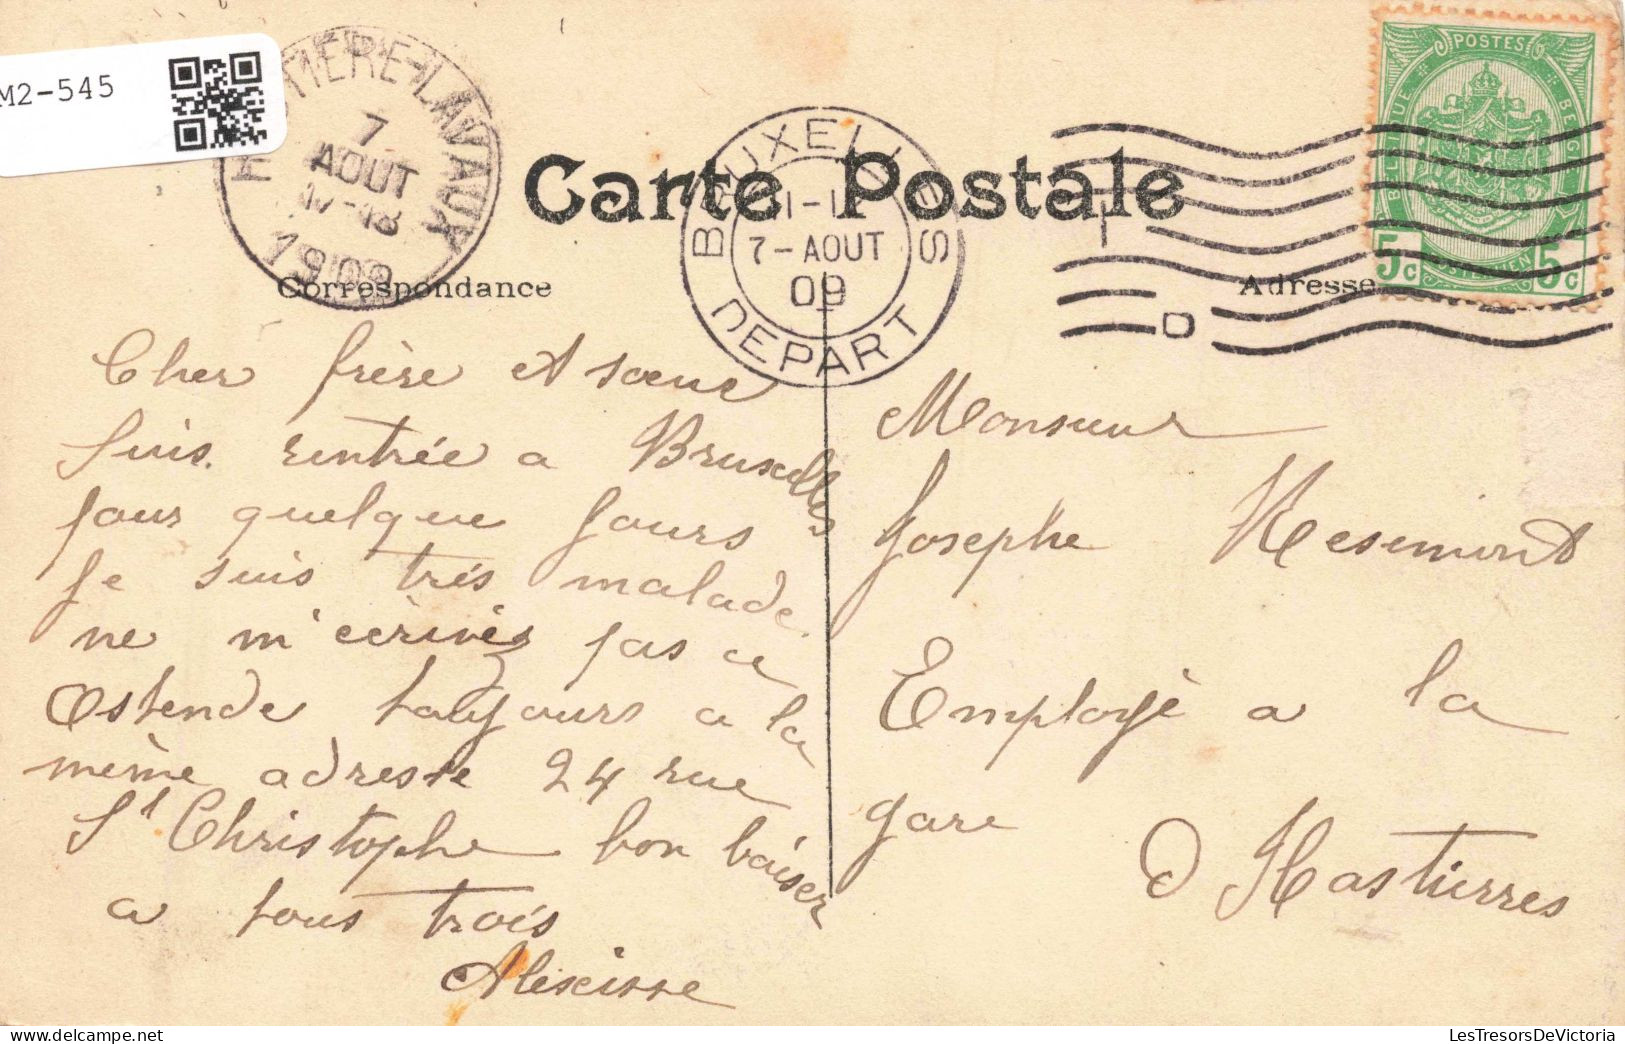 M2-545
HASTIERE-LAVAUX
7
AOUT
17-18
1909
BRUXELLES
7-AOUT
09
DEPART
POSTES
BELGIQUE
BELGIE
5c
5c
Carte Postale
Correspondance
Adresse
D
Cher frère et sœur
Suis rentrée a Bruxelles
pour quelque jours
je suis très malade
ne m'écrivez pas a
Ostende toujours a la
même adresse 24 rue
St Christophe bon baiser
a tous trois
Monsieur
Josephe Resimont
Employé a la
gare
D Hastierres
LesTresorsDeVictoria.com